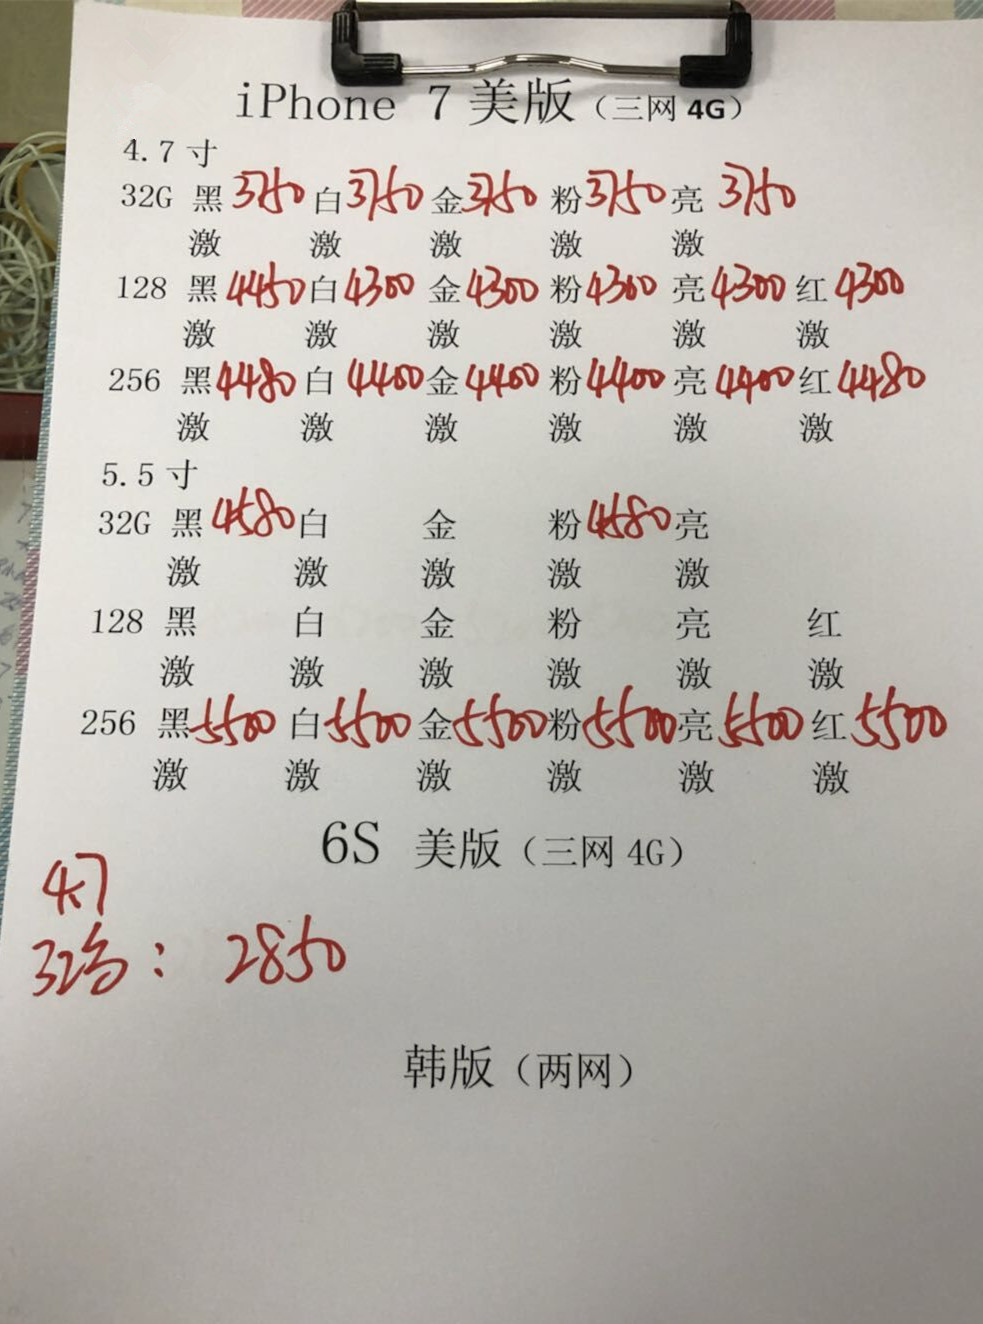 iPhone 7 美版（三网 4G）
4.7 寸
32G 黑 3750 白 3750 金 3750 粉 3750 亮 3750
激 激 激 激 激
128 黑 4450 白 4300 金 4300 粉 4300 亮 4300 红 4300
激 激 激 激 激 激
256 黑 4480 白 4400 金 4400 粉 4400 亮 4400 红 4480
激 激 激 激 激 激
5.5 寸
32G 黑 4580 白 金 粉 4580 亮
激 激 激 激 激
128 黑 白 金 粉 亮 红
激 激 激 激 激 激
256 黑 5500 白 5500 金 5500 粉 5500 亮 5500 红 5500
激 激 激 激 激 激
6S 美版（三网 4G）
4.7
32 ： 2850
韩版（两网）